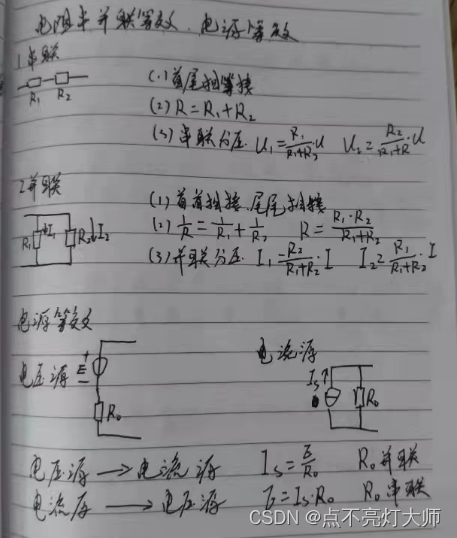 电阻串并联等效、电源等效
1.串联
R₁ R₂
(1)首尾相等接
(2)R=R₁+R₂
(3)串联分压 U₁=R₁/(R₁+R₂)·U U₂=R₂/(R₁+R)·U
2.并联
R₁ I₁ R₂ I₂
(1)首首相接,尾尾相接
(2)1/R=1/R₁+1/R₂ R=R₁·R₂/(R₁+R₂)
(3)并联分压 I₁=R₂/(R₁+R₂)·I I₂=R₁/(R₁+R₂)·I
电源等效
电压源 + E − R₀
电流源 Is R₀
电压源→电流源 Is=E/R₀ R₀并联
电流源→电压源 E=Is·R₀ R₀串联
CSDN @点不亮灯大师